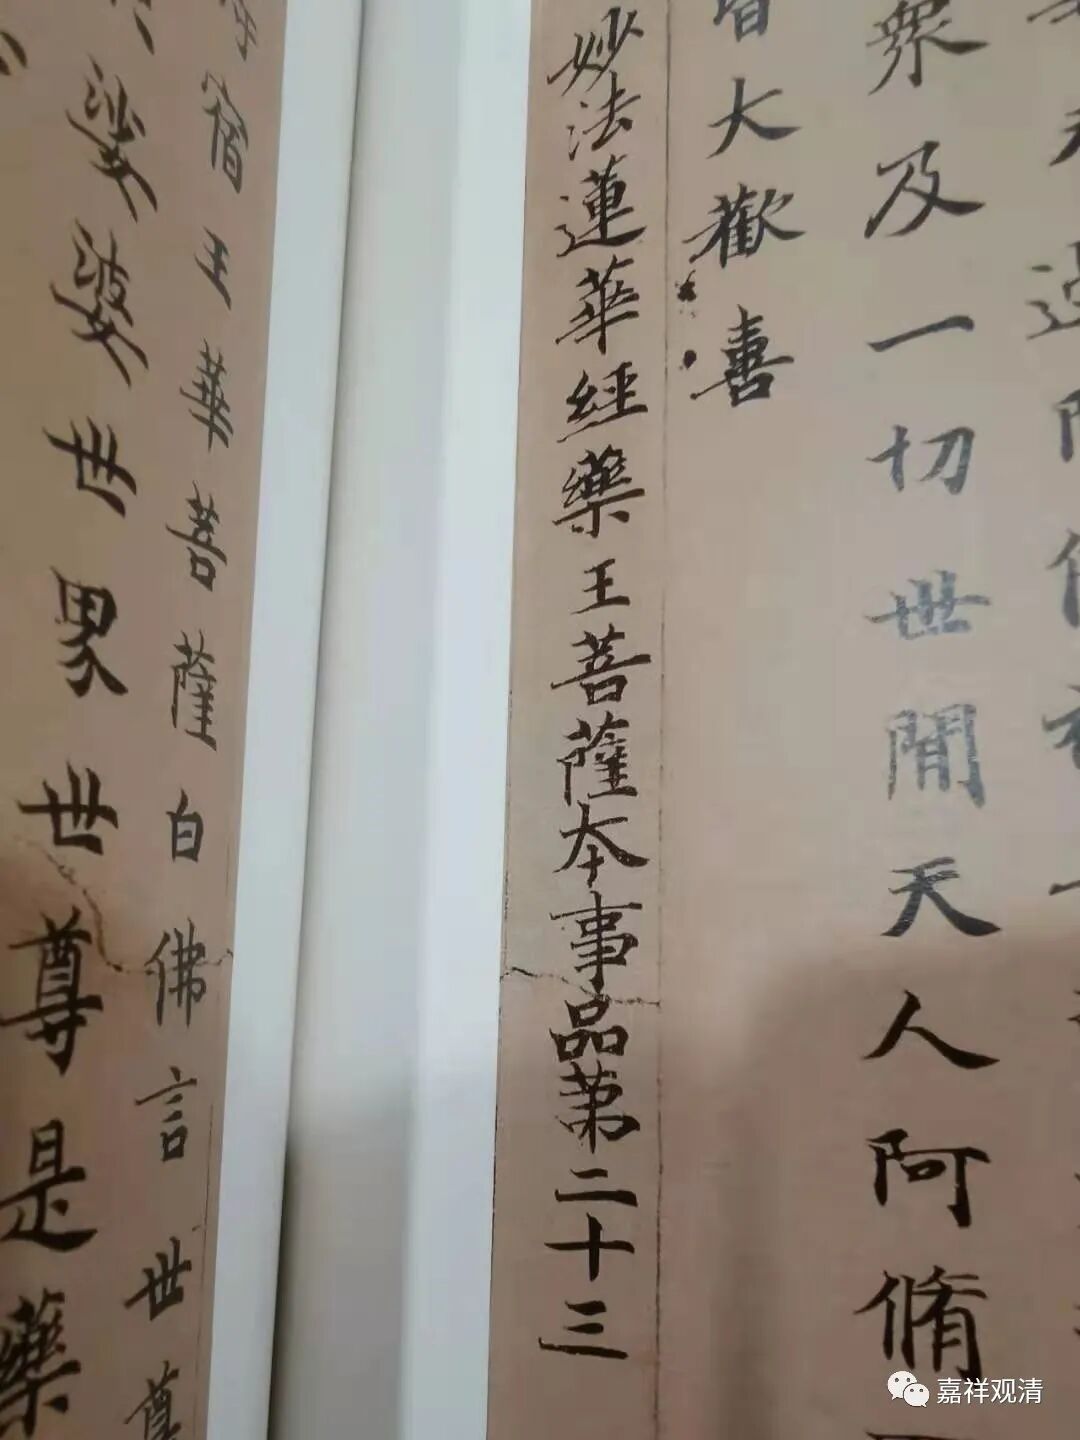 眾及一切世間天人阿脩
皆大歡喜
妙法蓮華經藥王菩薩本事品第二十三
宿王華菩薩白佛言世尊
娑婆世界世尊是藥
嘉祥观清